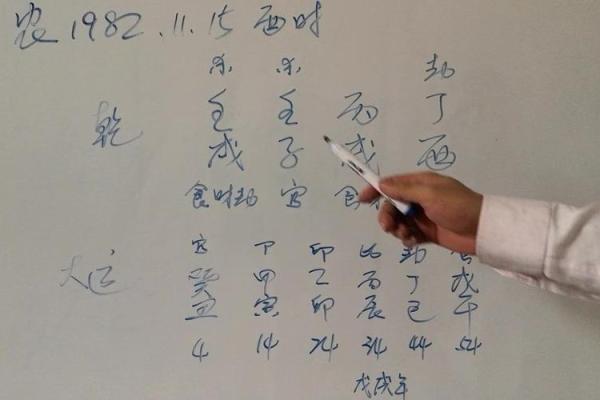 农1982.11.15 酉时
杀 杀 劫
乾 壬 壬 丙 丁
戌 子 戌 酉
食财劫 官 食
官 卩 印 比 劫 食
大运 癸 甲 乙 丙 丁 戊
丑 寅 卯 辰 巳 午
4 14 24 34 44 54
戊戌年